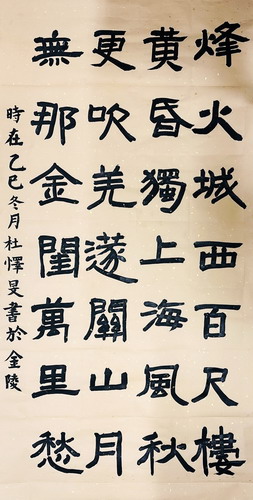 烽火城西百尺樓
黃昏獨上海風秋
更吹羌篴關山月
無那金閨萬里愁
時在乙巳冬月杜懌旻書於金陵